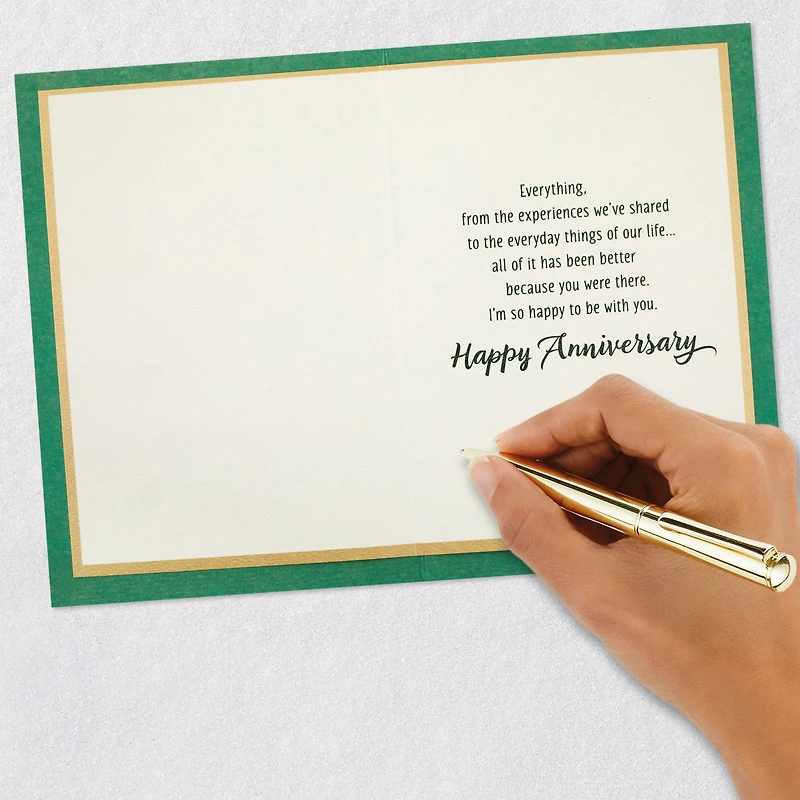 Everything,
from the experiences we've shared
to the everyday things of our life...
all of it has been better
because you were there.
I'm so happy to be with you.
Happy Anniversary